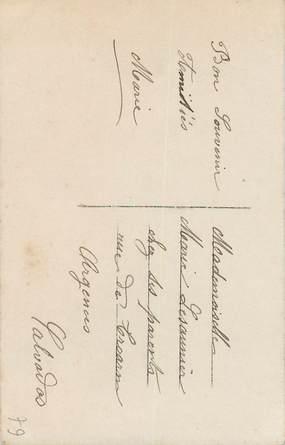 Bon Souvenir
Amitiés
Marie
Mademoiselle
Marie Lesaunier
chez ses parents
rue de Troarn
Argences
Calvados
79